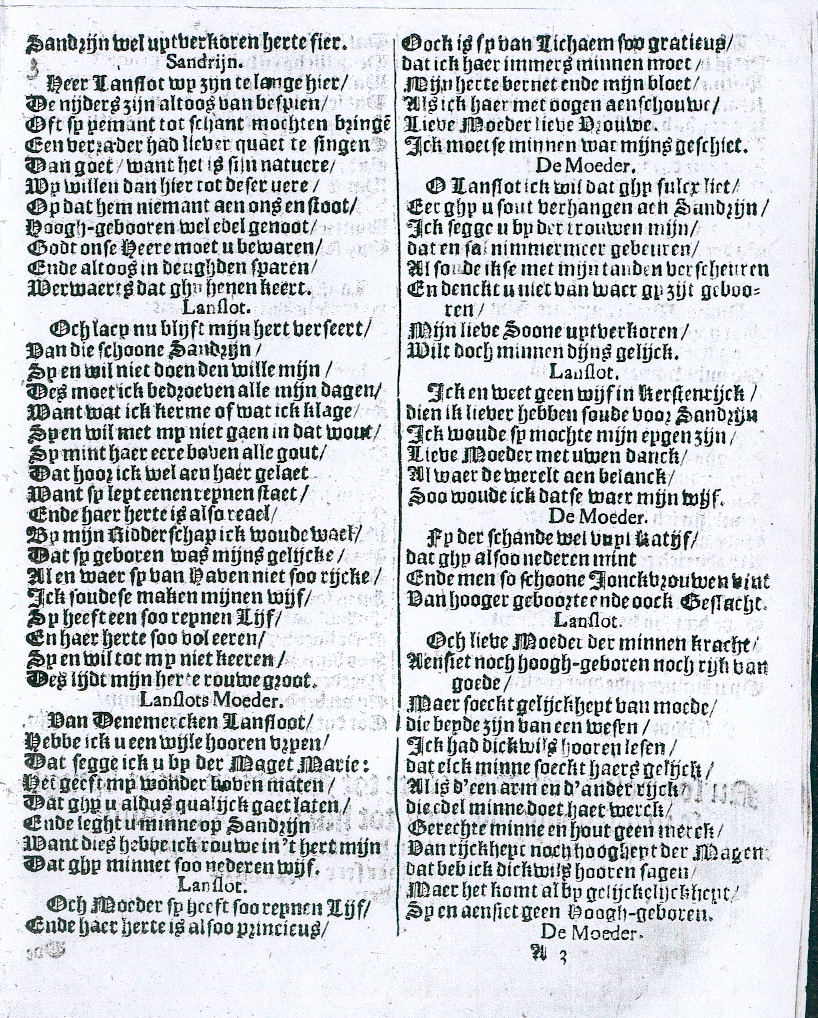 Sandrijn wel uytverkoren herte fier.
Sandrijn.
Heer Lanslot wy zijn te lange hier/
De nijders zijn altoos van bespien/
Oft sy yemant tot schant mochten bringē
Een verrader had liever quaet te singen
Dan goet/want het is sijn natuere/
Wy willen dan hier tot deser uere/
Op dat hem niemant aen ons en stoot/
Hoogh-gebooren wel edel genoot/
Godt onse Heere moet u bewaren/
Ende altoos in deughden sparen/
Werwaerts dat ghy henen keert.
Lanslot.
Och lacy nu blijft mijn hert verseert/
Van die schoone Sandrijn/
Sy en wil niet doen den wille mijn/
Des moet ick bedroeven alle mijn dagen/
Want wat ick kerme of wat ick klage/
Sy en wil met my niet gaen in dat wout/
Sy mint haer eere boven alle gout/
Dat hoor ick wel aen haer gelaet
Want sy leyt eenen reynen staet/
Ende haer herte is also reael/
By mijn Ridderschap ick woude wael/
Dat sy geboren was mijns gelijcke/
Al en waer sy van Haven niet soo rijcke/
Ick soudese maken mijnen wijf/
Sy heeft een soo reynen Lijf/
En haer herte soo vol eeren/
Sy en wil tot my niet keeren/
Des lijdt mijn herte rouwe groot.
Lanslots Moeder.
Van Denemercken Lansloot/
Hebbe ick u een wijle hooren rypen/
Dat segge ick u by der Maget Marie:
Het geeft my wonder boven maten/
Dat ghy u aldus qualijck gaet laten/
Ende leght u minne op Sandrijn
Want dies hebbe ick rouwe in't hert mijn
Dat ghy minnet soo nederen wijf.
Lanslot.
Och Moeder sy heeft soo reynen Lijf/
Ende haer herte is alsoo princieus/
Oock is sy van Lichaem soo gratieus/
dat ick haer immers minnen moet/
Mijn herte bernet ende mijn bloet/
Als ick haer met oogen aenschouwe/
Lieve Moeder lieve Vrouwe.
Ick moetse minnen wat mijns geschiet.
De Moeder.
O Lanslot ick wil dat ghy sulcx liet/
Eer ghy u sout verhangen aen Sandrijn/
Ick segge u by der trouwen mijn/
dat en sal nimmermeer gebeuren/
Al soude ikse met mijn tanden verscheuren
En denckt u niet van waer gy zijt geboo=
ren/
Mijn lieve Soone uytverkoren/
Wilt doch minnen dijns gelijck.
Lanslot.
Ick en weet geen wijf in Kerstenrijck/
dien ik liever hebben soude voor Sandrijn
Ick woude sy mochte mijn eygen zijn/
Lieve Moeder met uwen danck/
Al waer de werelt aen belanck/
Soo woude ick datse waer mijn wijf.
De Moeder.
Fy der schande wel vuyl Katijf/
dat ghy alsoo nederen mint
Ende men so schoone Jonckvrouwen vint
Van hooger geboorte ende oock Geslacht.
Lanslot.
Och lieve Moeder der minnen kracht/
Aensiet noch hoogh-geboren noch rijk van
goede/
Maer soeckt gelijckheyt van moede/
die beyde zijn van een wesen/
Ick had dickwils hooren lesen/
dat elck minne soeckt haers gelijck/
Al is d'een arm en d'ander rijck/
die edel minne doet haer werck/
Gerechte minne en hout geen merck/
Van rijckheyt noch hoogheyt der Magen
dat heb ick dickwils hooren sagen/
Maer het komt al by gelijckelijckheyt/
Sy en aensiet geen Hoogh-geboren.
De Moeder.
A 3